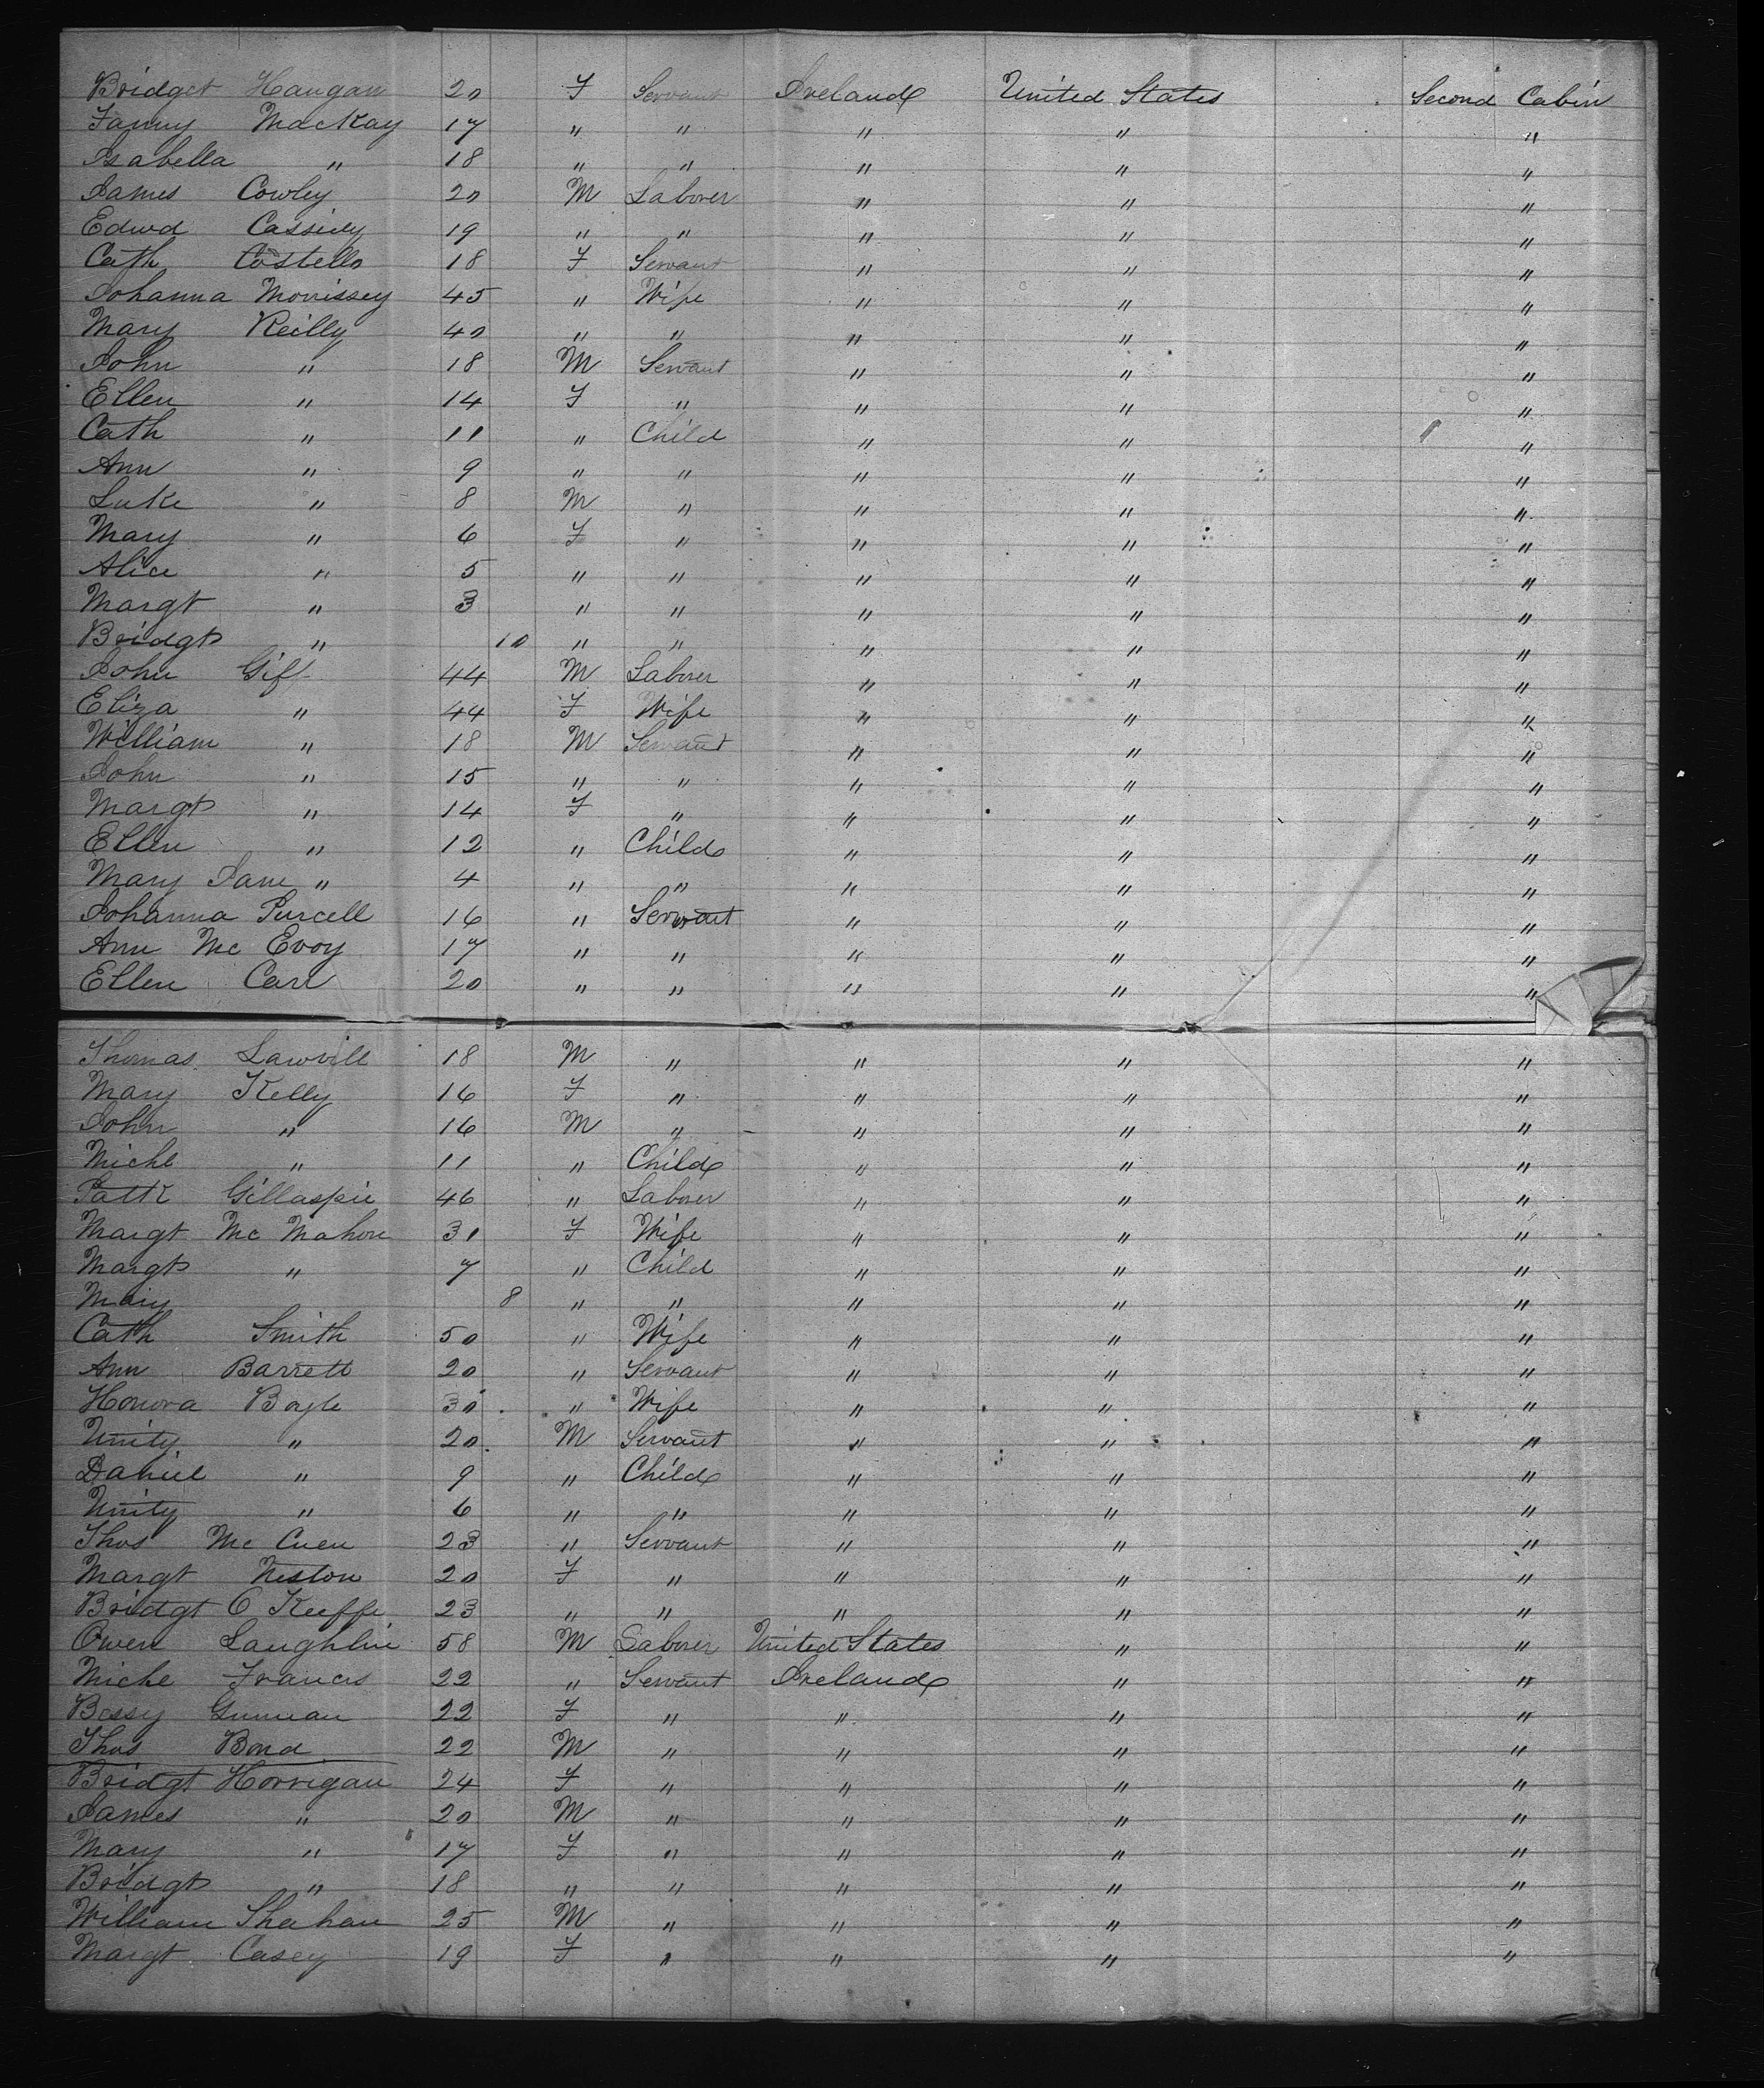 Bridget Haugan 20 F Servant Ireland United States Second Cabin
Fanny MacKay 17 " " " " "
Isabella " 18 " " " " "
James Cowley 20 M Laborer " " "
Edwd Cassidy 19 " " " " "
Cath Costello 18 F Servant " " "
Johanna Morrissey 45 " Wife " " "
Mary Reilly 40 " " " " "
John " 18 M Servant " " "
Ellen " 14 F " " " "
Cath " 11 " Child " " "
Ann " 9 " " " " "
Luke " 8 M " " " "
Mary " 6 F " " " "
Alice " 5 " " " " "
Margt " 3 " " " " "
Bridgt " 10 " " " " "
John Giff 44 M Laborer " " "
Eliza " 44 F Wife " " "
William " 18 M Servant " " "
John " 15 " " " " "
Margt " 14 F " " " "
Ellen " 12 " Child " " "
Mary Jane " 4 " " " " "
Johanna Purcell 16 " Servant " " "
Ann Mc Evoy 17 " " " " "
Ellen Carr 20 " " " " "
Thomas 18 M " " " "
Mary Kelly 16 F " " " "
John " 16 M " " " "
Michl " 11 " Child " " "
Patk Gillaspie 46 " Laborer " " "
Margt Mc Mahon 31 F Wife " " "
Margt " 7 " Child " " "
Mary 8 " " " " "
Cath Smith 50 " Wife " " "
Ann Barrett 20 " Servant " " "
Honora Boyle 30 " Wife " " "
Unity " 20 M Servant " " "
Daniel " 9 " Child " " "
Unity " 6 " " " " "
Thos Mc Cuen 23 " Servant " " "
Margt Neston 20 F " " " "
Bridgt O Keeffe 23 " " " " "
Owen Laughlin 58 M Laborer United States " "
Michl Francis 22 " Servant Ireland " "
Bessy 22 F " " " "
Thos Bond 22 M " " " "
Bridgt Horrigan 24 F " " " "
James " 20 M " " " "
Mary " 17 F " " " "
Bridgt " 18 " " " " "
William Shehan 25 M " " " "
Margt Casey 19 F " " " "